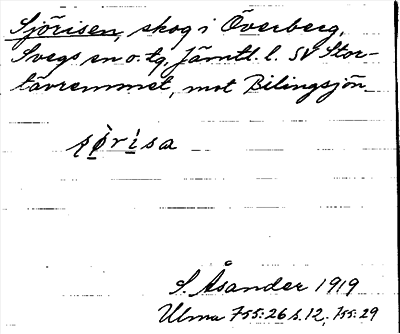 Sjörisen, skog i Överberg,
Svegs sn o. tg. Jämtl. l. SV Stor-
tävremmet, mot Bilingsjön.
sørisa
S. Åsander 1919
Ulma 755:26 s. 12, 755:29